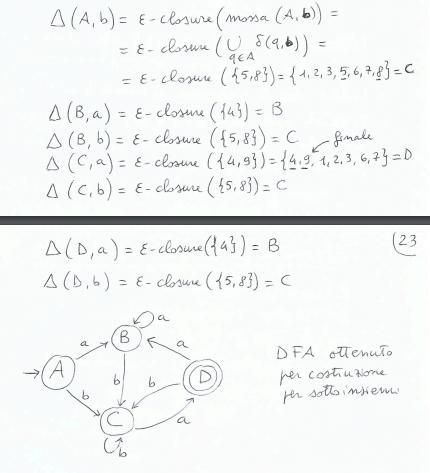 Δ(A,b) = ε-closure(mossa(A,b)) =
= ε-closure(⋃ δ(q,b)) =
q∈A
= ε-closure({5,8}) = {1,2,3,5,6,7,8} = C
Δ(B,a) = ε-closure({4}) = B
Δ(B,b) = ε-closure({5,8}) = C
finale
Δ(C,a) = ε-closure({4,9}) = {4,9,1,2,3,6,7} = D
Δ(C,b) = ε-closure({5,8}) = C
(23
Δ(D,a) = ε-closure({4}) = B
Δ(D,b) = ε-closure({5,8}) = C
a
B
a
a
A
b
b
D
b
C
a
b
DFA ottenuto
per costruzione
per sottoinsiemi